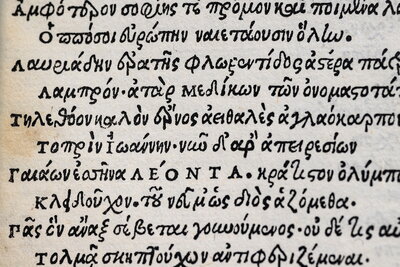 Ἀμφότερον σοφίης τε πρόμον καὶ ποιμένα λα
Ὁππόσοι εὐρώπην ναιετάουσιν ὅλην.
Λαυριάδην ἐρατῆς φλωρεντίδος ἀστέρα πάτ
Λαμπρόν· ἀτὰρ μεδίκων τῶν ὀνομαστοτάτ
Τηλεθόον καλὸν ἔρνος ἀειθαλὲς ἀγλαόκαρπον
Τοπρὶν Ἰωάννην· νῦν δ' ἄρ' ἀπειρεσίων
Γαιάων ἐσσῆνα ΛΕΟΝΤΑ. κράτιστον ὀλύμπ
Κληδοῦχον. τοῦ νεῦμ' ὡς διὸς ἁζόμεθα.
Γᾶς ὃν ἄναξ σέβεται γουνούμενος. οὐδέ τις αὐ
Τολμᾶ σκηπτούχων ἀντιφεριζέμεναι.